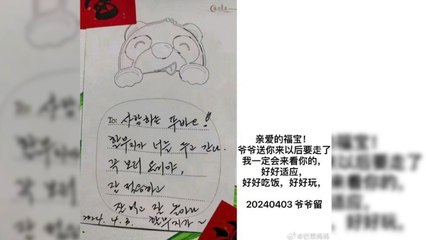 To: 사랑하는 푸바오!
할부지가 너를 두고 간다.
꼭 보러 올께야,
잘 적응하고
잘 먹고 잘 놀아라
2024. 4. 3. 할부지가~
亲爱的福宝!
爷爷送你来以后要走了
我一定会来看你的,
好好适应,
好好吃饭，好好玩,
20240403 爷爷留